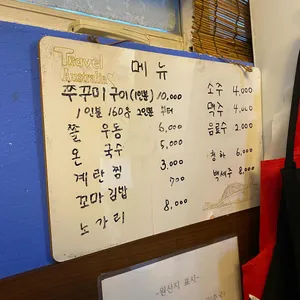 Travel
Australia
메뉴
쭈꾸미 구이(1인분) 10,000
1인분 160g 2인분 부터
쫄 우동 6,000
온 국수 5,000
계란찜 3,000
꼬마김밥
노가리 8,000
소주 4,000
맥주 4,000
음료수 2,000
청하 6,000
백세주 8,000
-원산지 표시-